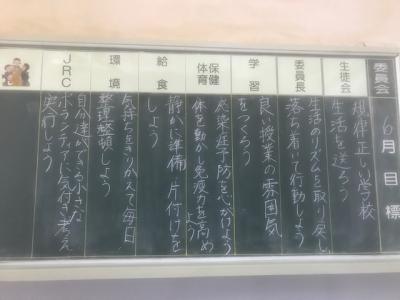 委員会
6月目標
生徒会
規律正しい学校
生活を送ろう
委員長
生活のリズムを取り戻し
落ち着いて行動しよう
学習
良い授業の雰囲気
をつくろう
保健
体育
感染症予防を心がけよう
体を動かし免疫力を高め
よう
給食
静かに準備・片付けを
しよう
環境
気持ちをきりかえて毎日
整理整頓しよう
JRC
自分達ができる小さな
ボランティアに気付き考え
実行しよう